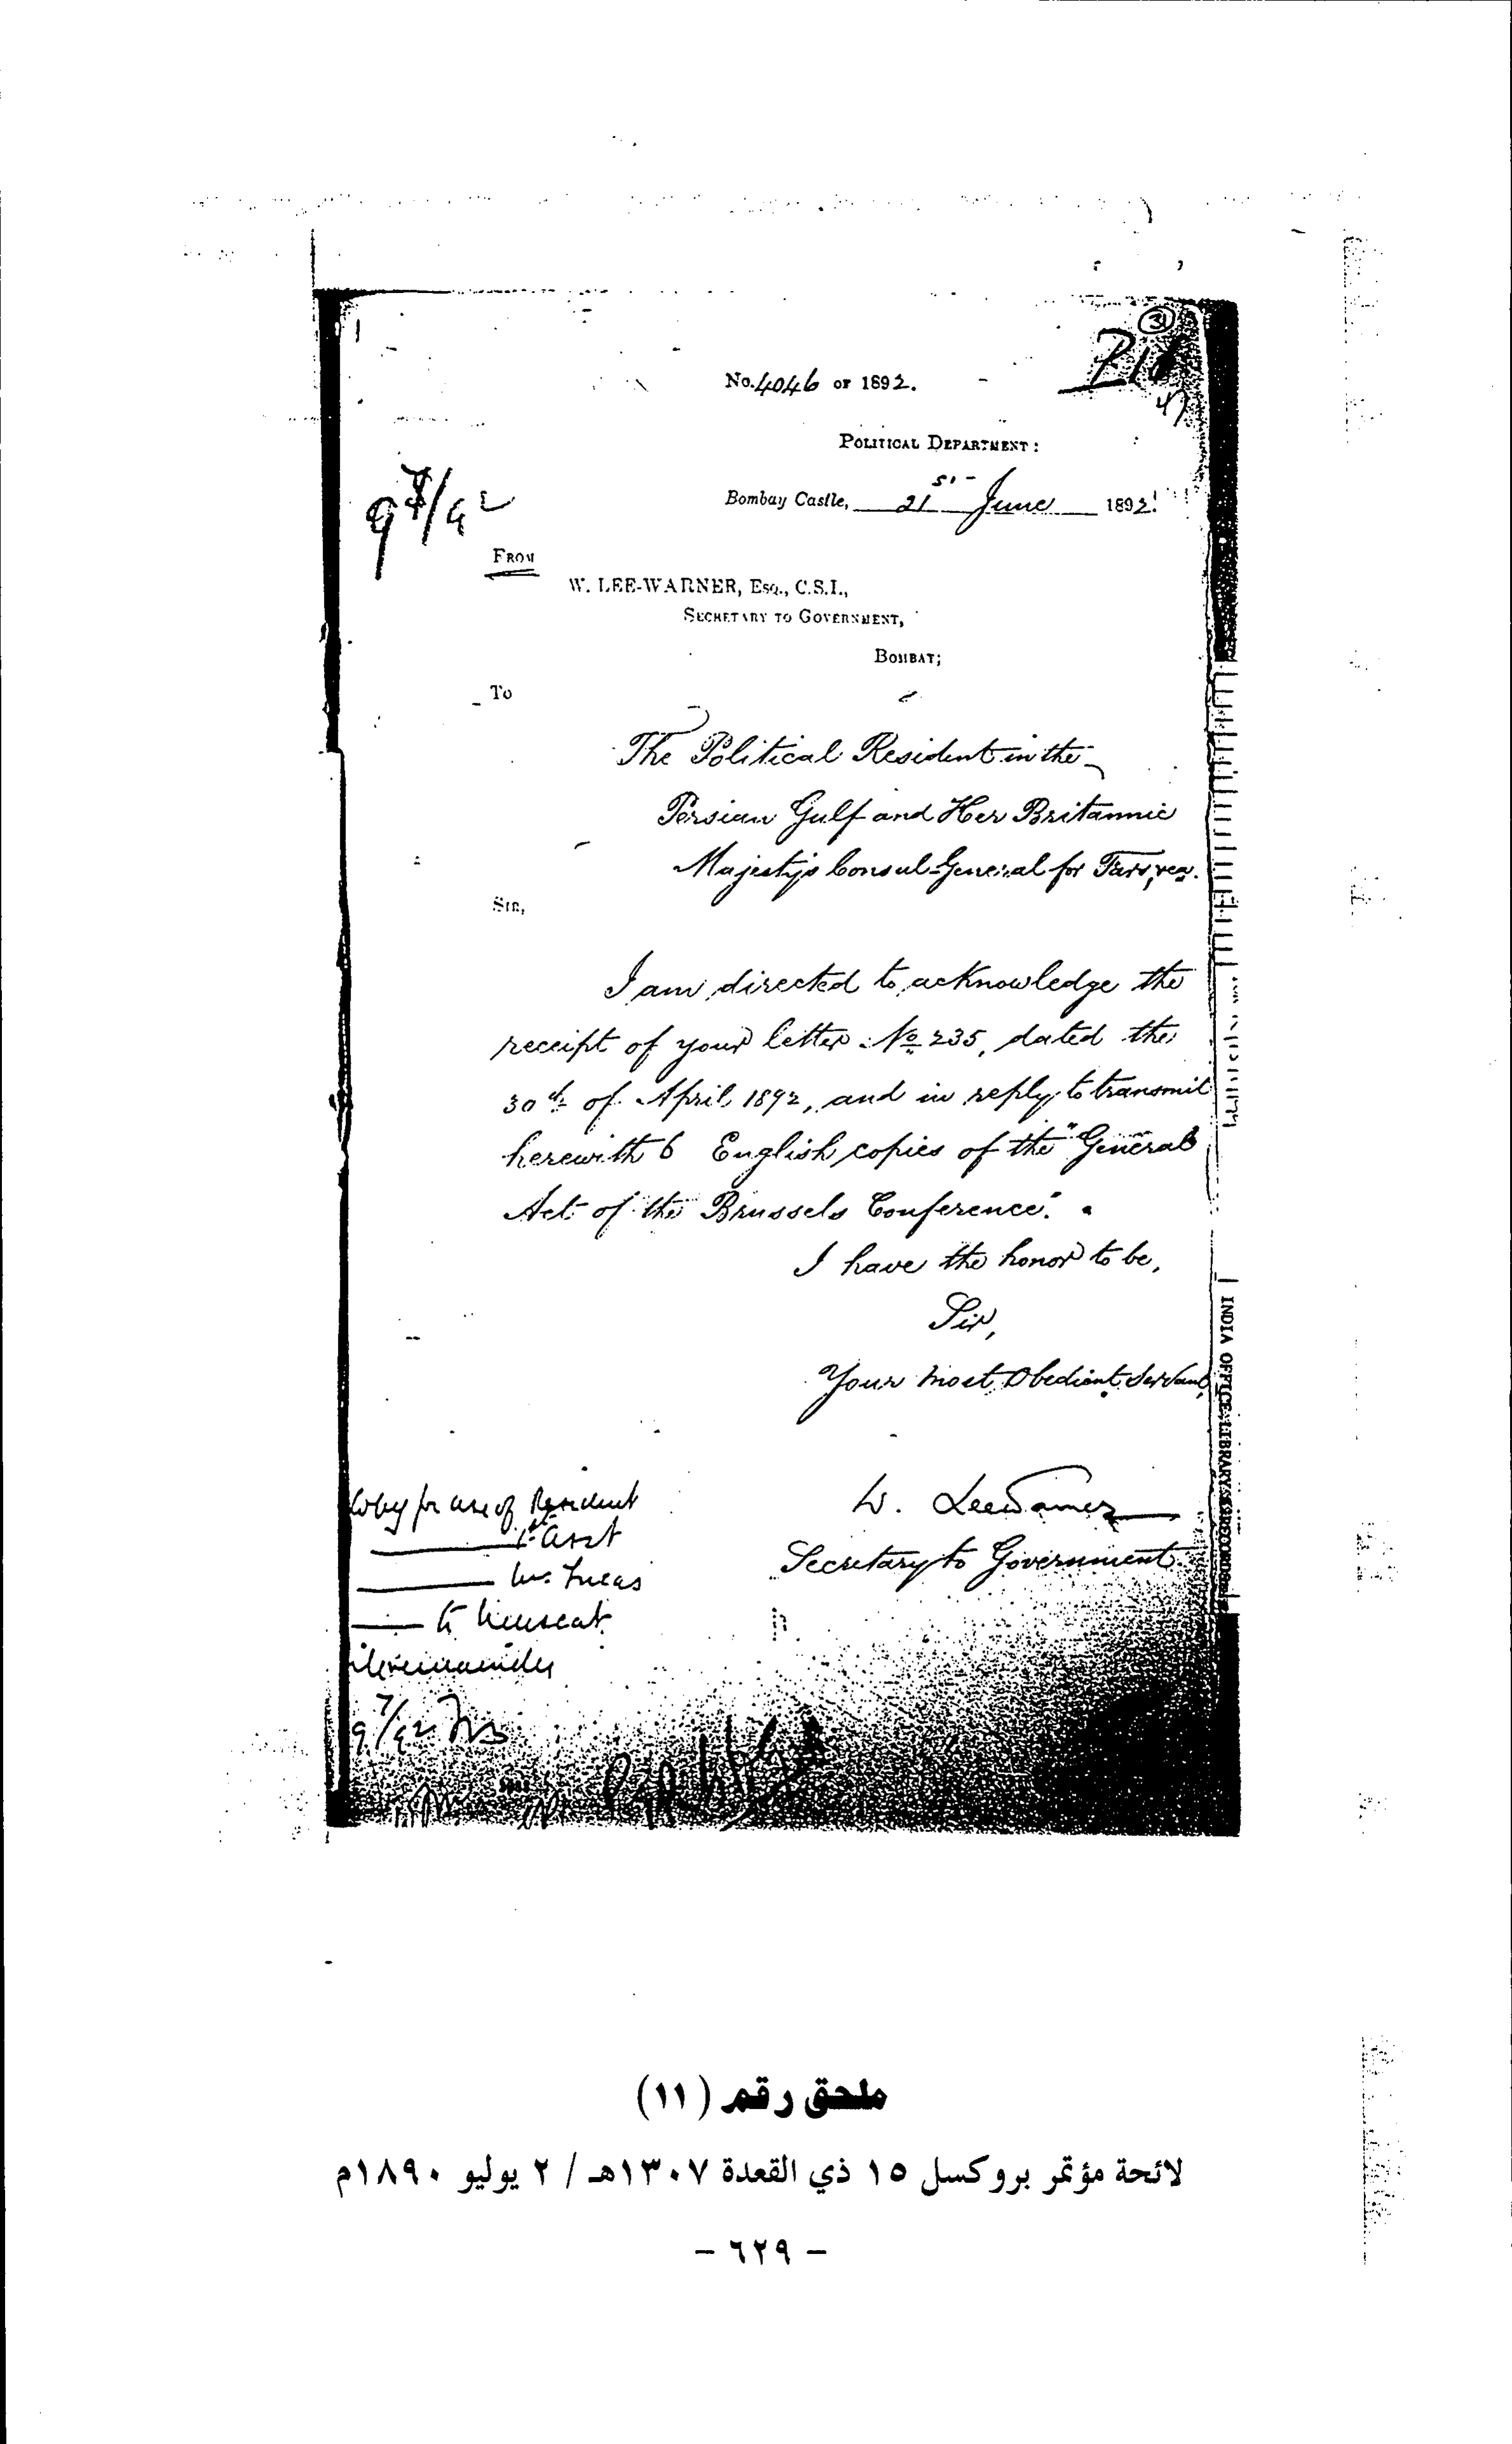 31
No. 4046 OF 1892.
POLITICAL DEPARTMENT:
Bombay Castle, 21st June 1892.
9 7/92
FROM
W. LEE-WARNER, Esq., C.S.I.,
SECRETARY TO GOVERNMENT,
BOMBAY;
To
The Political Resident in the
Persian Gulf and Her Britannic
Majesty's Consul-General for Fars,
SIR,
I am directed to acknowledge the
receipt of your letter No 235, dated the
30th of April 1892, and in reply to transmit
herewith 6 English copies of the "General
Act of the Brussels Conference".
I have the honor to be,
Sir,
Your most Obedient Servant,
W. Lee Warner
Secretary to Government
Copy for use of Resident
1st Asst
Mr. Lucas
to Muscat
remainder
9 7/92
INDIA OFFICE LIBRARY & RECORDS
ملحق رقم (١١)
لائحة مؤتمر بروكسل ١٥ ذي القعدة ١٣٠٧هـ / ٢ يوليو ١٨٩٠م
- ٦٢٩ -